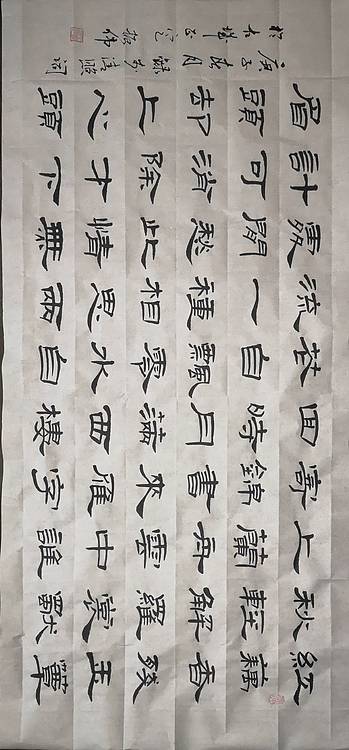 紅藕香殘玉簟
秋輕解羅裳獨
上蘭舟雲中誰
寄錦書來雁字
回時月滿西樓
花自飄零水自
流一種相思兩
處閒愁此情無
計可消除才下
眉頭卻上心頭
庚子春月錄李清照词
於古城正定振伟